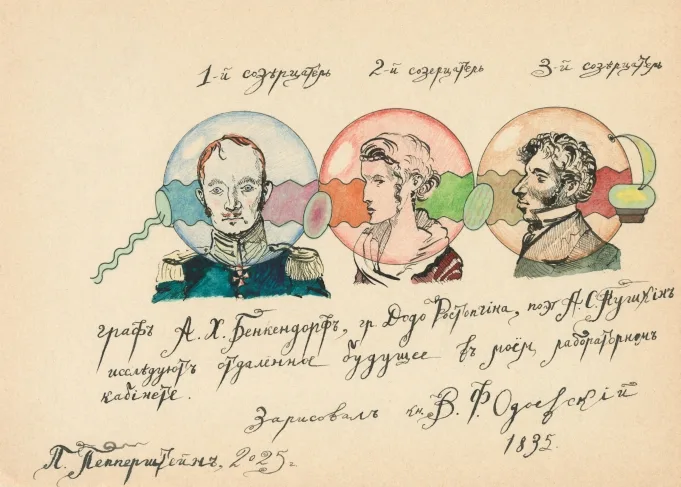 1-й созѣрцатѣрь 2-й созерцатѣрь 3-й созѣрцатѣрь
графъ А. Х. Бенкендорфъ, гр Додо Ростопчіна, поэт А. С. Пушкінъ
исслѣдуютъ отдаленное будущее въ моём лабораторномъ
кабінете.
Зарисовалъ кн. В. Ф. Одоевскій
1835.
П. Пепперштейнъ, 2025г.